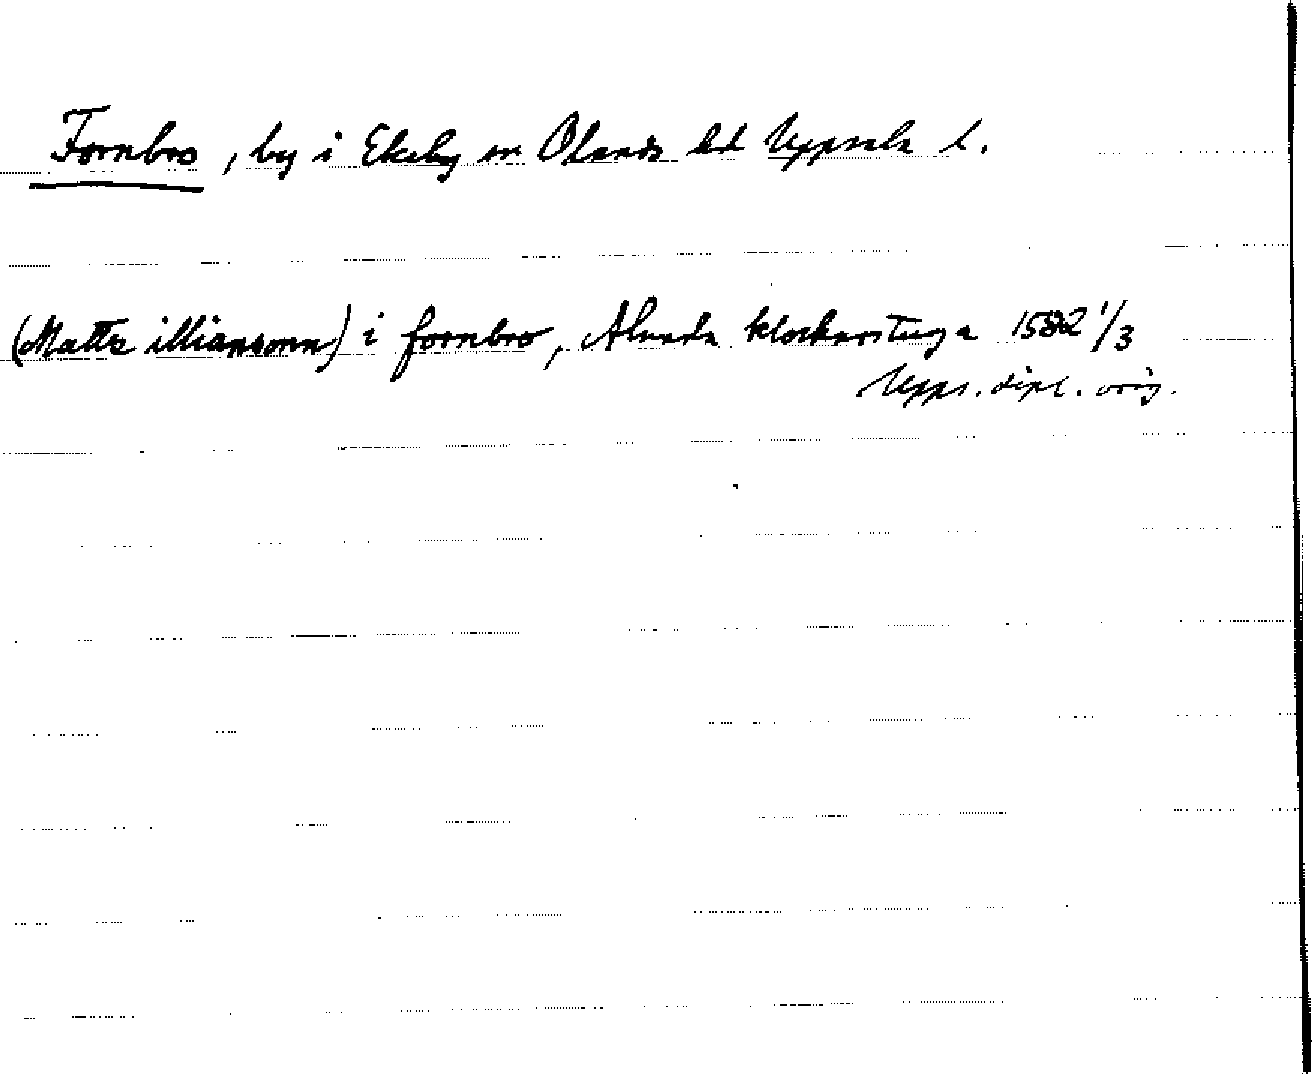 Fornbro, by i Ekeby sn Olands hd Uppsala l.
(Matts illiansonn) i fornbro, Alunda klockarstuga 1582 1/3
Upps. dipl. orig.